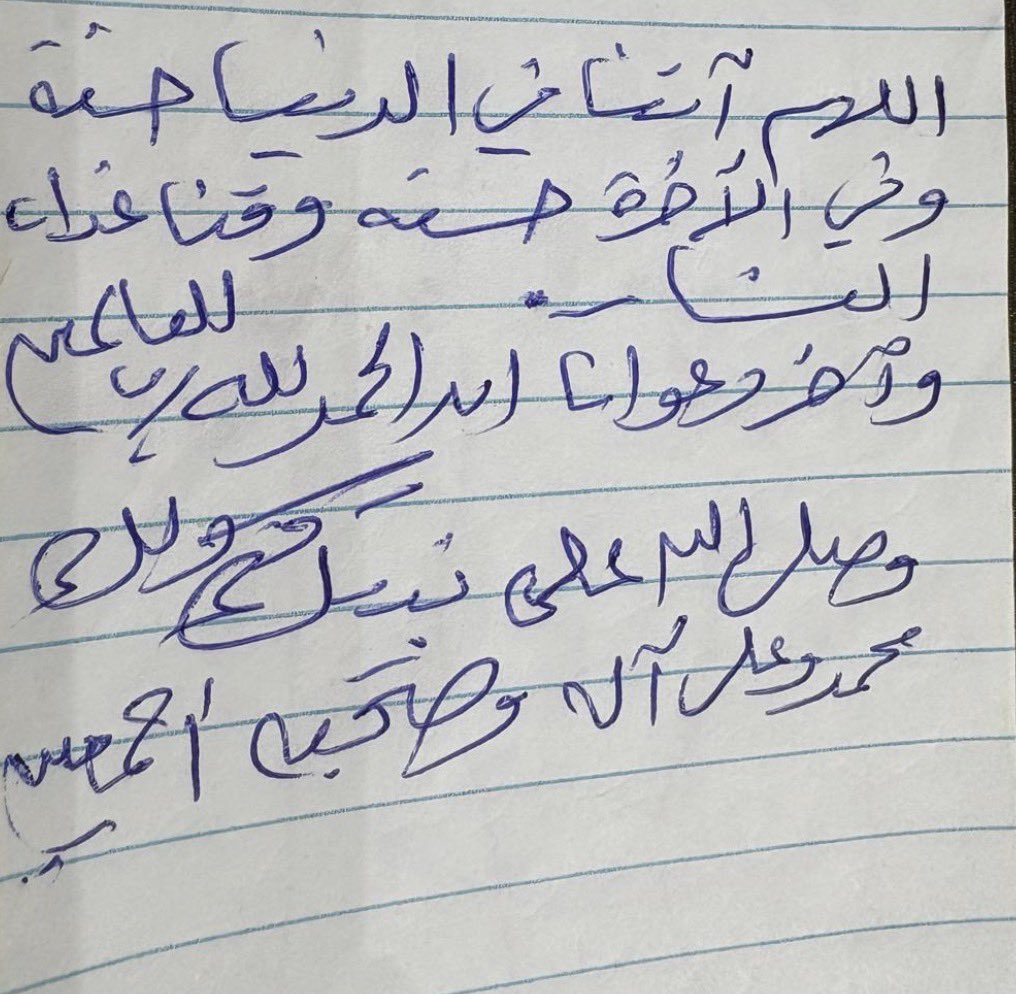 اللهم آتنا في الدنيا حسنة
وفي الآخرة حسنه وقنا عذاب
النار.
وآخر دعوانا ان الحمد لله رب للعالمين
وصل اللهم على نبيك
محمد وعلى آله وصحبه أجمعين